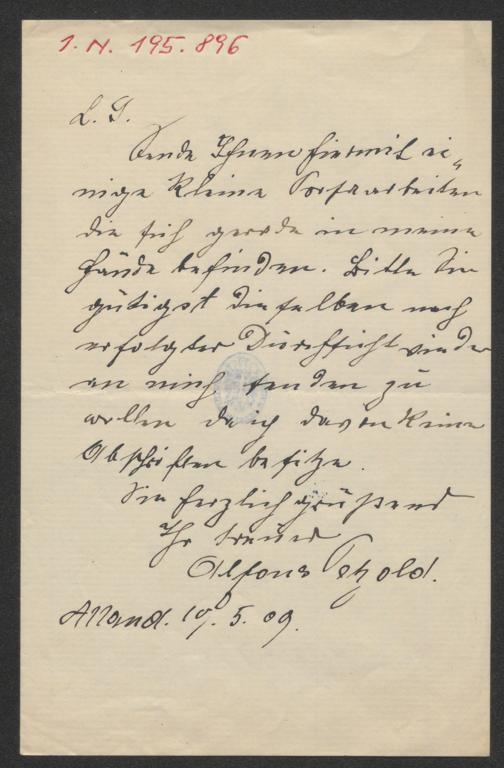 I. N. 195.896
L. G.
Sende Ihnen hiermit ei„
nige kleine Prosaarbeiten
die sich gerade in meine
Hände befinden. Bitte Sie
gütigst dieselben nach
erfolgter Durchsicht wieder
an mich senden zu
wollen da ich davon keine
Abschriften besitze.
Sie herzlich grüßend
Ihr treuer
Alfons Petzold.
Alland. 10/. 5. 09.